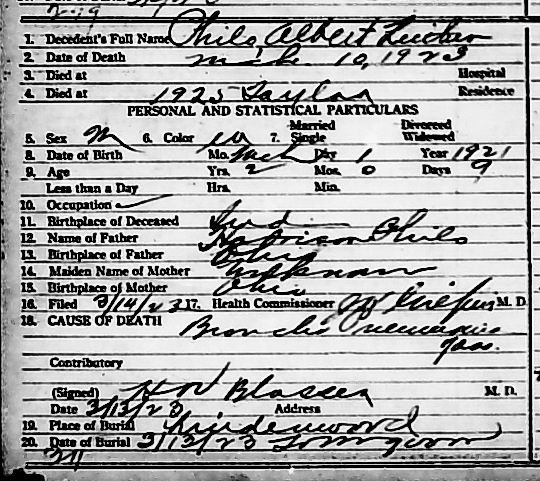 1. Decedent's Full Name Philo Albert
2. Date of Death Mch 10, 1923
3. Died at Hospital
4. Died at 1925 Taylor Residence
PERSONAL AND STATISTICAL PARTICULARS
5. Sex M 6. Color W 7. Married Single Divorced Widowed
8. Date of Birth Mo. Mch Day 1 Year 1921
9. Age Yrs. 2 Mos. 0 Days 9
Less than a Day Hrs. Min.
10. Occupation
11. Birthplace of Deceased Ind
12. Name of Father Harrison Philo
13. Birthplace of Father Ohio
14. Maiden Name of Mother Unknown
15. Birthplace of Mother Ohio
16. Filed 3/14/23 17. Health Commissioner M. D.
18. CAUSE OF DEATH Broncho Pneumonia
Contributory
(Signed) H W M. D.
Date 3/13/23 Address
19. Place of Burial Lindenwood
20. Date of Burial 3/12/23